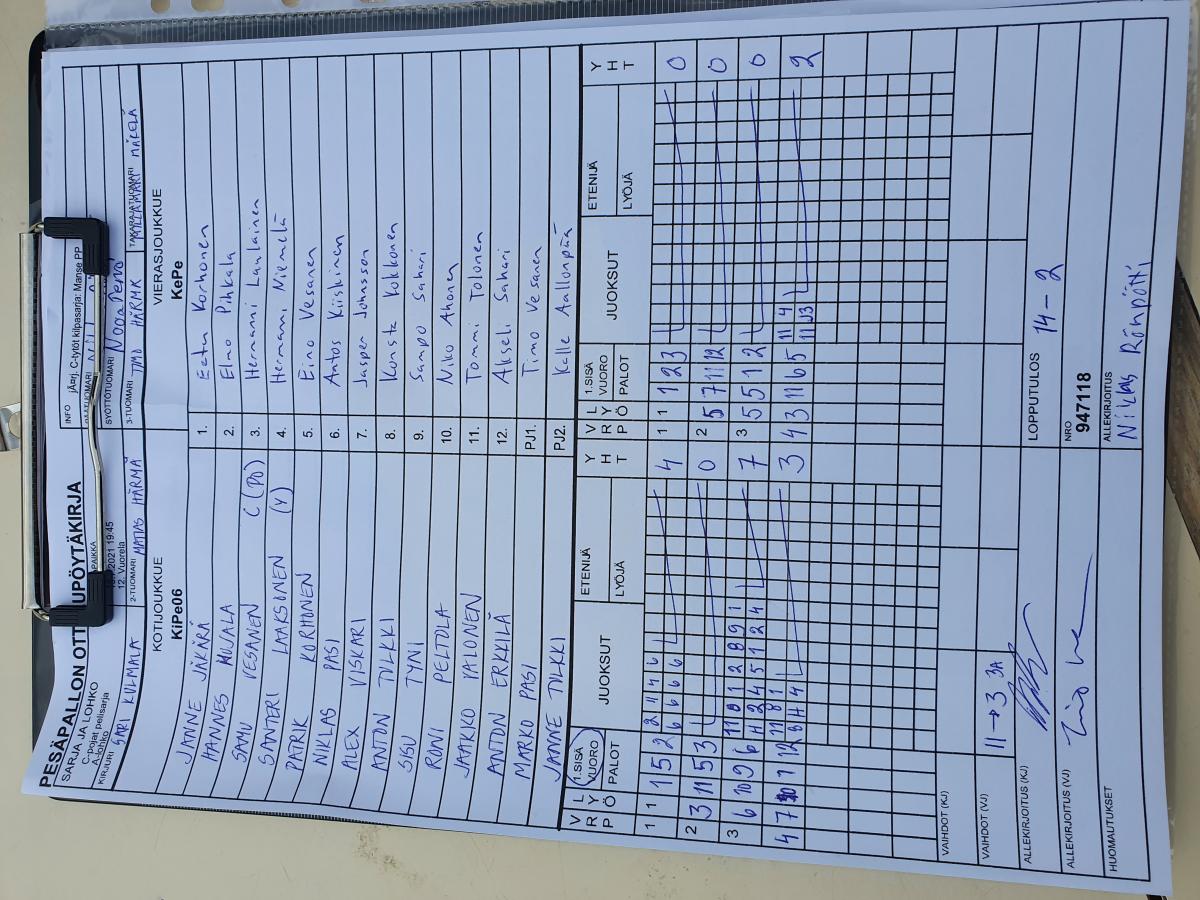 PESÄPALLON OTT UPÖYTÄKIRJA
SARJA JA LOHKO
C-pojat pelisarja
A-lohko
PAIKKA
2021 19:45
12. Vuorela
INFO jÄprj, C-tytöt kilpasarja: Manse PP
SYÖTTÖTUOMARI
KIRJURI SARI KULMALA
2-TUOMARI MATIAS HÄRMÄ
3-TUOMARI TIMO HÄRMK
TAKARAJATUOMARI MÄKELÄ
KOTIJOUKKUE
KiPe06
VIERASJOUKKUE
KePe
JANNE JÄKÄRÄ 1. Eetu Korhonen
HANNES MUJALA 2. Elmo Pihkala
SAMU VESANEN C (PO) 3. Hermanni Laulainen
SANTERI LAAKSONEN (V) 4. Hermanni Niemelä
PATRIK KORHONEN 5. Eino Vesanen
NIKLAS PASI 6. Antos Kiiskinen
ALEX VISKARI 7. Jasper Johnsson
ANTON TILKKI 8. Konsta Kokkonen
SISU TYNI 9. Sampo Sahari
RONI PELTOLA 10. Niko Ahonen
JAAKKO VALONEN 11. Tommi Tolonen
ANTON ERKKILÄ 12. Akseli Sahari
MARKO PASI PJ1. Timo Vesanen
JANNE TILKKI PJ2. Kalle Aallonpää
V R P L Y Ö 1.SISÄ VUORO PALOT JUOKSUT ETENIJÄ LYÖJÄ Y H T V R P L Y Ö 1.SISÄ VUORO PALOT JUOKSUT ETENIJÄ LYÖJÄ Y H T
1 1 1 5 2 2 4 4 6 4 1 1 1 2 3 0
6 6 6 6
2 3 11 5 3 0 2 5 7 11 12 0
3 6 10 9 6 11 8 1 2 8 9 1 7 3 5 5 1 2 0
4 2 4 5 1 2 4
4 7 1 12 11 8 1 3 4 3 11 6 5 11 4 2
3 4 4 11 J3
VAIHDOT (KJ)
VAIHDOT (VJ) 11→3 3A
ALLEKIRJOITUS (KJ)
LOPPUTULOS 14-2
ALLEKIRJOITUS (VJ)
NRO
947118
HUOMAUTUKSET
ALLEKIRJOITUS
Niklas Rönnpötti